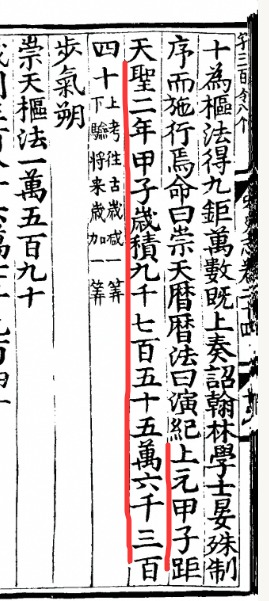 十為樞法得九鉅萬數既上奏詔翰林學士晏殊制
序而施行焉命曰崇天暦暦法曰演紀上元甲子距
天聖二年甲子歲積九千七百五十五萬六千三百
四十
上考往古歲减一筭
下驗將来歲加一筭
步氣朔
崇天樞法一萬五百九十